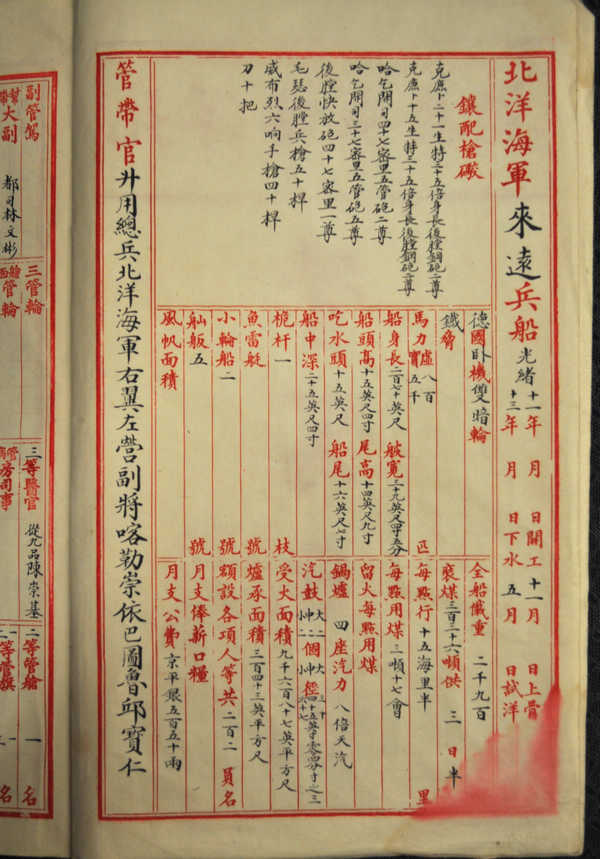 北洋海軍來遠兵船光緒十一年 月 日開工十一月 日上骨
十三年 月 日下水五月 日試洋
鑲配槍礮
克鹿卜二十一生特三十五倍身長後膛鋼砲二尊
克鹿卜十五生特三十五倍身長後膛鋼砲二尊
哈乞開司四十七密里五管砲二尊
哈乞開司三十七密里五管砲五尊
後膛快放砲四十七密里一尊
毛瑟後膛兵槍五十桿
威布烈六响手槍四十桿
刀十把
德國臥機雙暗輪
鐵脅
馬力虛八百
實五千 匹
船身長二百七十英尺 舨寬三十九英尺四寸五分
船頭高十五英尺四寸 尾高十四英尺九寸
吃水頭十五英尺 船尾十六英尺七寸
船中深二十五英尺四寸
桅杆一 枝
魚雷艇 號
小輪船二 號
舢舨五 號
風帆面積
全船儎重 二千九百
裝煤三百三十六噸供 三 日半
每點行 十五海里半 里
每點用煤 三噸十七會
留火每點用煤
鍋爐 四座汽力 八倍天汽
汽鼓大二 個
受火面積九千六百八十七英平方尺
爐承面積三百四十三英平方尺
額設各項人等共二百二 員名
月支俸薪口糧
月支公費京平銀五百五十兩
管帶官升用總兵北洋海軍右翼左營副將喀勒崇依巴圖魯邱寶仁
副管駕
幫帶大副 都司林文彬
三管輪
管輪
三等醫官 從九品陳崇基
司事
二等管艙 一 名
一等管旗 名